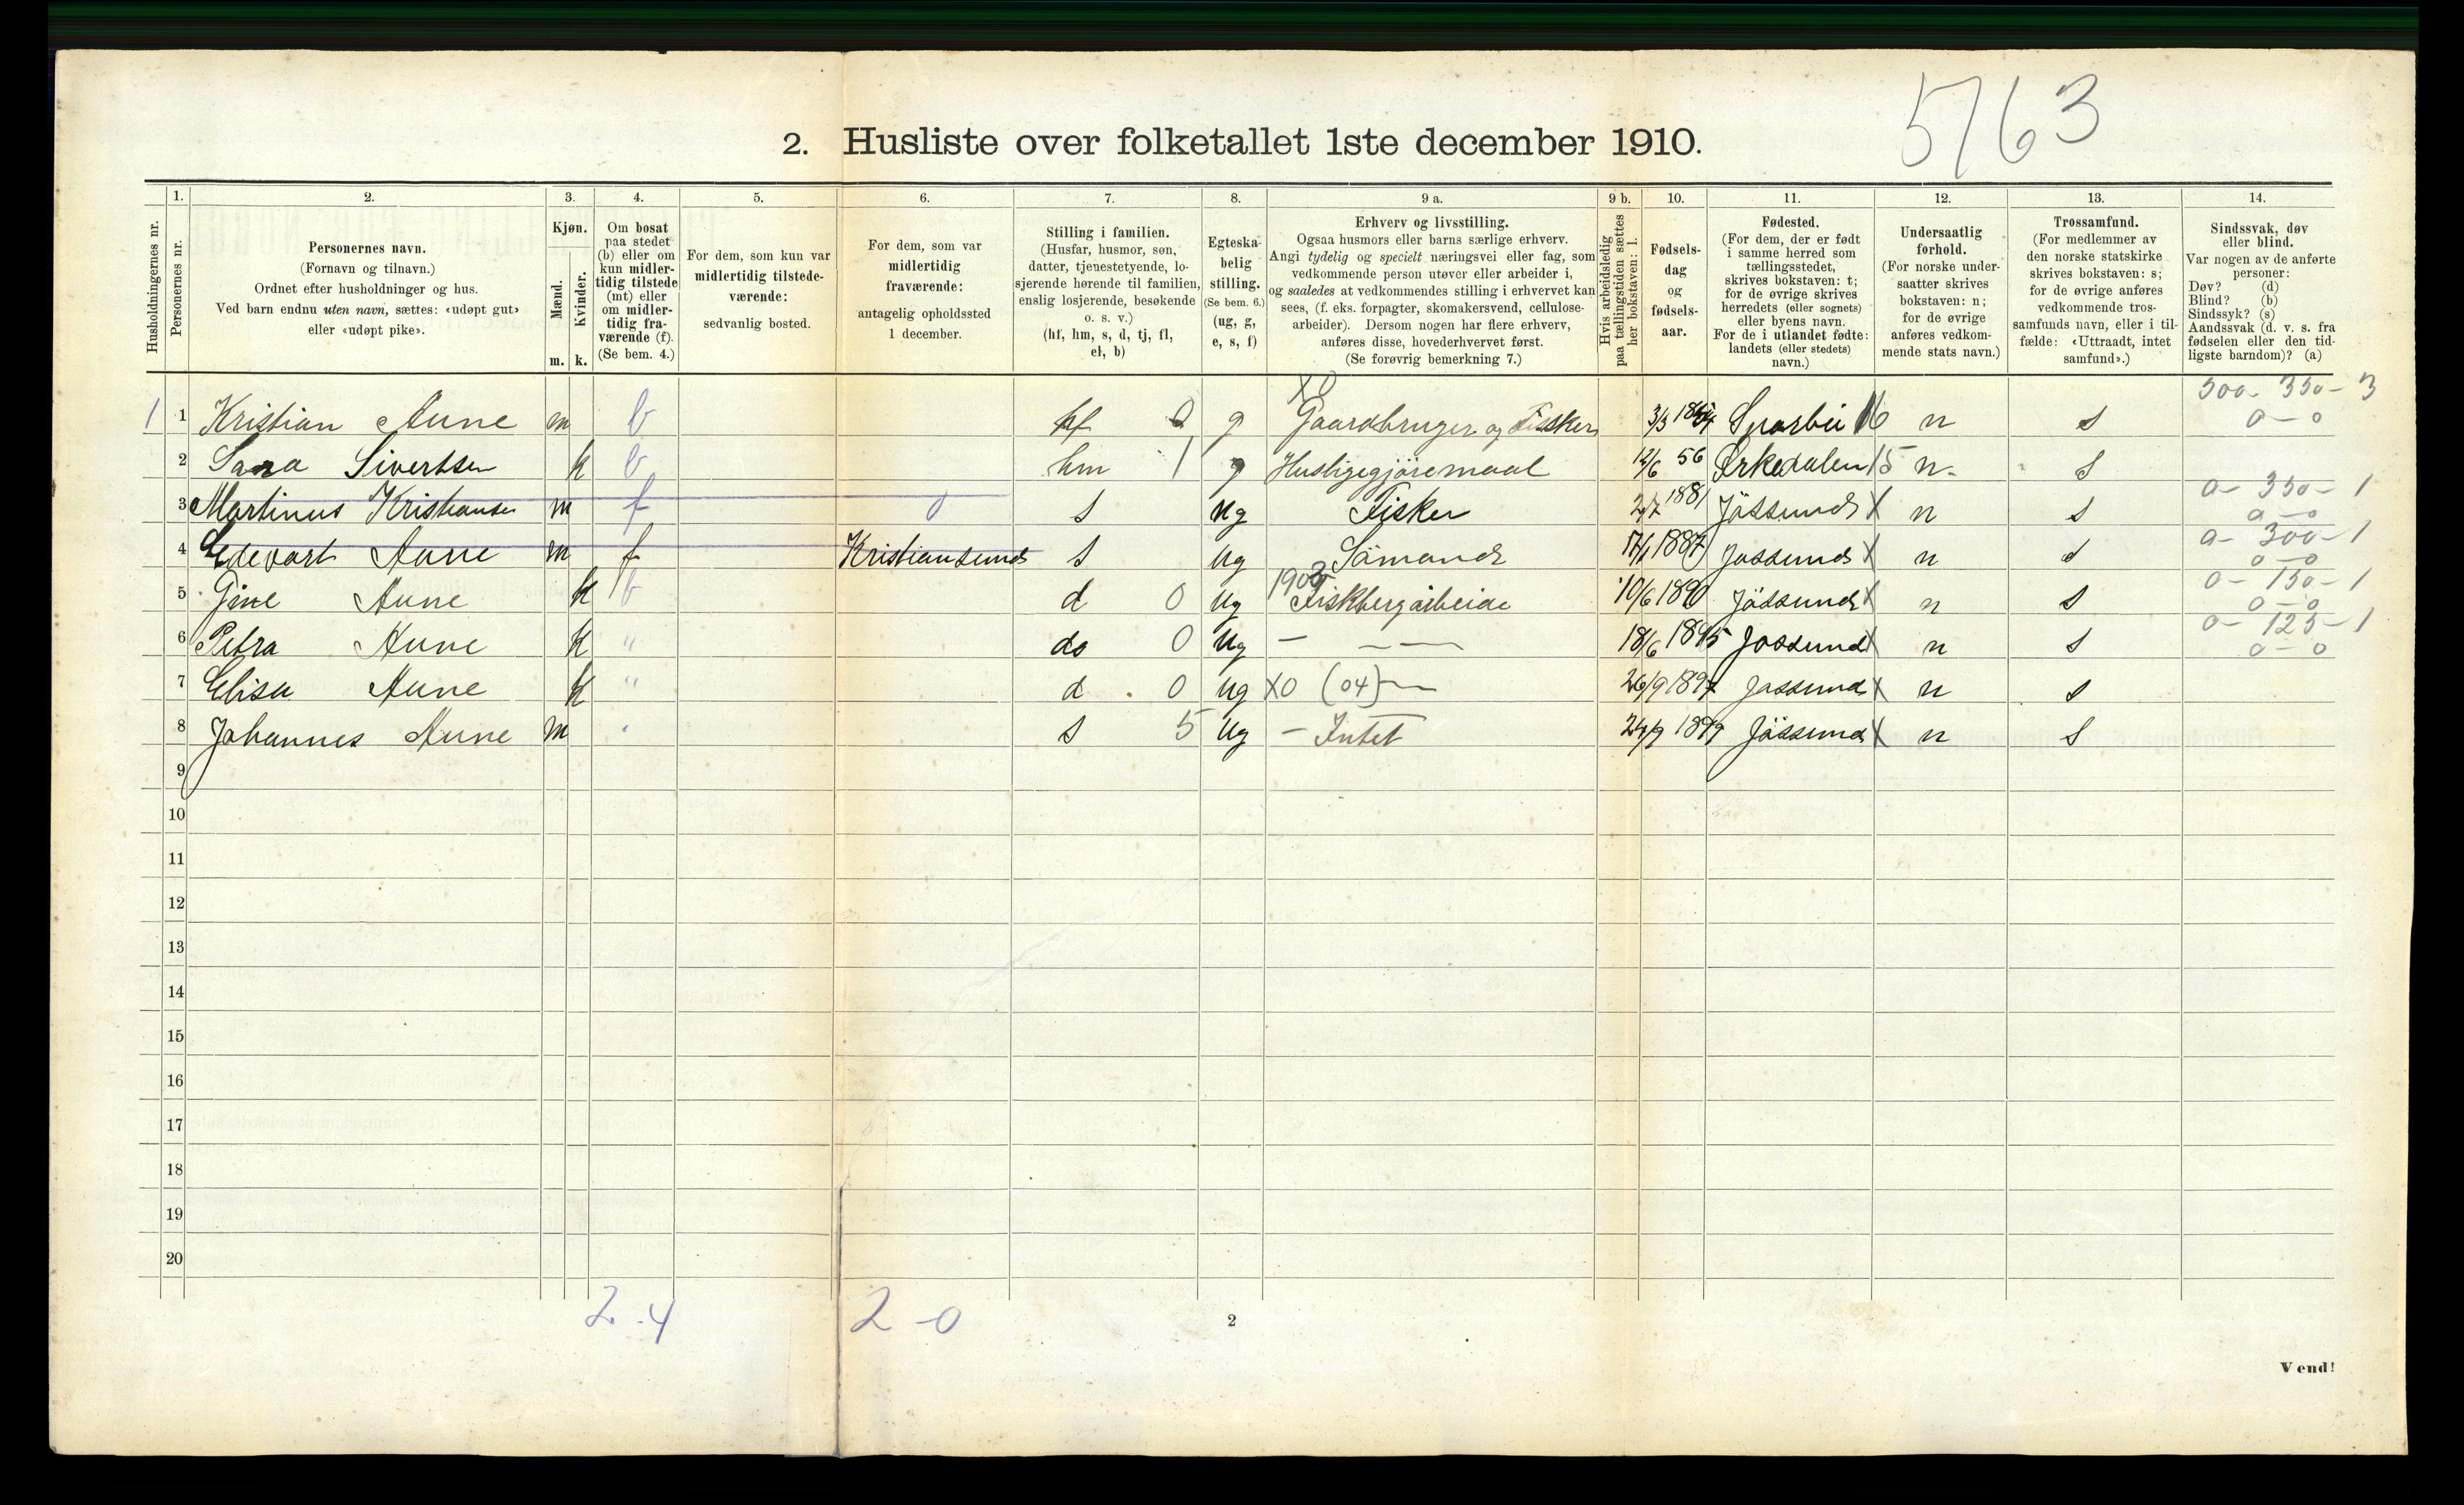 5763
2. Husliste over folketallet 1ste december 1910.
1. 2. 3. 4. 5. 6. 7. 8. 9 a. 9 b. 10. 11. 12. 13. 14.
Husholdningernes nr.
Personernes nr.
Personernes navn.
(Fornavn og tilnavn.)
Ordnet efter husholdninger og hus.
Ved barn endnu uten navn, sættes: «udøpt gut»
eller «udøpt pike».
Kjøn.
Mænd.
Kvinder.
m. k.
Om bosat
paa stedet
(b) eller om
kun midler-
tidig tilstede
(mt) eller
om midler-
tidig fra-
værende (f).
(Se bem. 4.)
For dem, som kun var
midlertidig tilstede-
værende:
sedvanlig bosted.
For dem, som var
midlertidig
fraværende:
antagelig opholdssted
1 december.
Stilling i familien.
(Husfar, husmor, søn,
datter, tjenestetyende, lo-
sjerende hørende til familien,
enslig losjerende, besøkende
o. s. v.)
(hf, hm, s, d, tj, fl,
el, b)
Egteska-
belig
stilling.
(Se bem. 6.)
(ug, g,
e, s, f)
Erhverv og livsstilling.
Ogsaa husmors eller barns særlige erhverv.
Angi tydelig og specielt næringsvei eller fag, som
vedkommende person utøver eller arbeider i,
og saaledes at vedkommendes stilling i erhvervet kan
sees, (f. eks. forpagter, skomakersvend, cellulose-
arbeider). Dersom nogen har flere erhverv,
anføres disse, hovederhvervet først.
(Se forøvrig bemerkning 7.)
Hvis arbeidsledig
paa tællingstiden sættes
her bokstaven: l.
Fødsels-
dag
og
fødsels-
aar.
Fødested.
(For dem, der er født
i samme herred som
tællingsstedet,
skrives bokstaven: t;
for de øvrige skrives
herredets (eller sognets)
eller byens navn.
For de i utlandet fødte:
landets (eller stedets)
navn.)
Undersaatlig
forhold.
(For norske under-
saatter skrives
bokstaven: n;
for de øvrige
anføres vedkom-
mende stats navn.)
Trossamfund.
(For medlemmer av
den norske statskirke
skrives bokstaven: s;
for de øvrige anføres
vedkommende tros-
samfunds navn, eller i til-
fælde: «Uttraadt, intet
samfund».)
Sindssvak, døv
eller blind.
Var nogen av de anførte
personer:
Døv? (d)
Blind? (b)
Sindssyk? (s)
Aandssvak (d. v. s. fra
fødselen eller den tid-
ligste barndom)? (a)
X0 500 - 350 - 3
1 1 Kristian Aune m b hf g Gaardbruger og Fisker 3/3 Sparbu 16 n s 0 - 0
2 Sara Sivertsen k b hm 1 g Husligegjöremaal 12/6 56 Orkedalen 15 n. s
0 - 350 - 1
3 Martinus Kristiansen m f 0 s ug Fisker 2/7 1881 Jössund X n s 0 - 0
0 - 300 - 1
4 Edevart Aune m f Kristiansund s ug Sömand 17/1 1887 Jössund X n s 0 - 0
0 - 150 - 1
5 Gine Aune k b d 0 ug Fiskbergarbeide 10/6 1890 Jössund X n s 0 - 0
0 - 125 - 1
6 Petra Aune k " do 0 ug — — 18/6 1895 Jössund X n s 0 - 0
7 Elisa Aune k " d 0 ug X0 (04) — 26/9 1897 Jössund X n s
8 Johannes Aune m " s 5 ug - Intet 24/9 1899 Jössund X n s
9
10
11
12
13
14
15
16
17
18
19
20
2 - 4 2 - 0
2
Vend!